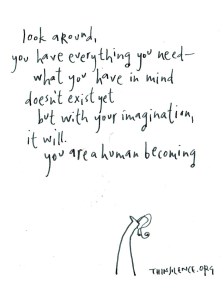 look around,
you have everything you need—
what you have in mind
doesn't exist yet
but with your imagination,
it will.
you are a human becoming
THINSILENCE.ORG